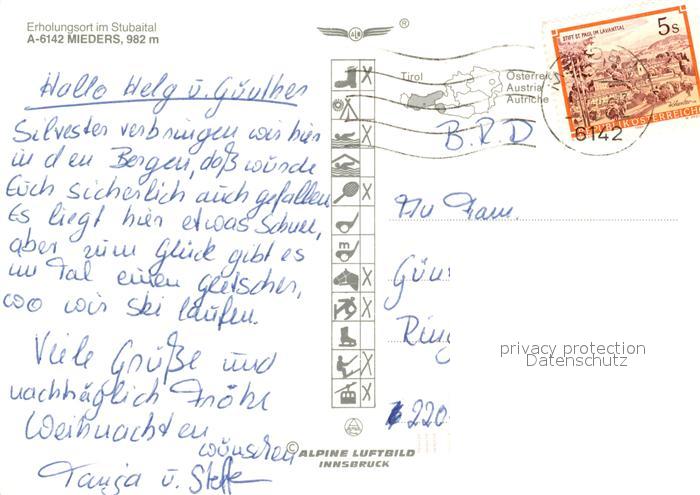 Erholungsort im Stubaital
A-6142 MIEDERS, 982 m
Hallo Helg u. Günther
Silvester verbringen wir hier
in den Bergen, daß würde
Euch sicherlich auch gefallen.
Es liegt hier etwas Schnee,
aber zum Glück gibt es
im Tal einen gletscher,
wo wir Ski laufen.
Viele Grüße und
nachträglich Fröhe
Weihnachten
wünschen
Tanja u. Steffe
Tirol
Österreich
Austria
Autriche
STIFT ST. PAUL IM LAVANTTAL
5s
REPUBLIK ÖSTERREICH
6142
B.R.D
An Fam.
Gün
Ring
220
privacy protection
Datenschutz
© ALPINE LUFTBILD
INNSBRUCK